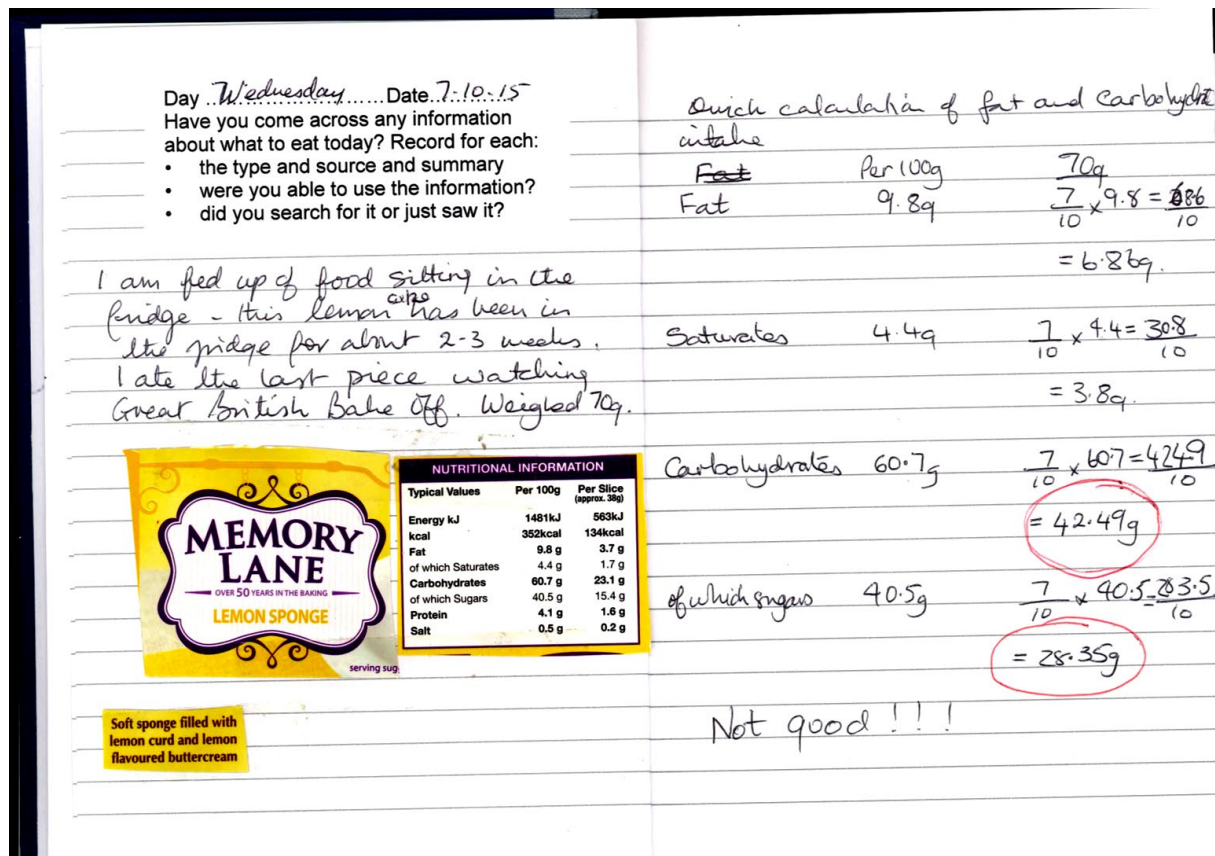 Day Wednesday Date 7-10-15
Have you come across any information
about what to eat today? Record for each:
• the type and source and summary
• were you able to use the information?
• did you search for it or just saw it?
I am fed up of food sitting in the
fridge - this lemon cake has been in
the fridge for about 2-3 weeks.
I ate the last piece watching
Great British Bake Off. Weighed 70g.
MEMORY
LANE
OVER 50 YEARS IN THE BAKING
LEMON SPONGE
serving sug
NUTRITIONAL INFORMATION
Typical Values Per 100g Per Slice
(approx. 38g)
Energy kJ 1481kJ 563kJ
kcal 352kcal 134kcal
Fat 9.8 g 3.7 g
of which Saturates 4.4 g 1.7 g
Carbohydrates 60.7 g 23.1 g
of which Sugars 40.5 g 15.4 g
Protein 4.1 g 1.6 g
Salt 0.5 g 0.2 g
Soft sponge filled with
lemon curd and lemon
flavoured buttercream
Quick calculation of fat and carbohydrate
intake
Fat Per 100g 70g
Fat 9.8g 7/10 × 9.8 = 686/10
= 6.86g.
Saturates 4.4g 7/10 × 4.4 = 30.8/10
= 3.8g.
Carbohydrates 60.7g 7/10 × 60.7 = 4249/10
= 42.49g
of which sugars 40.5g 7/10 × 40.5 = 283.5/10
= 28.35g
Not good !!!